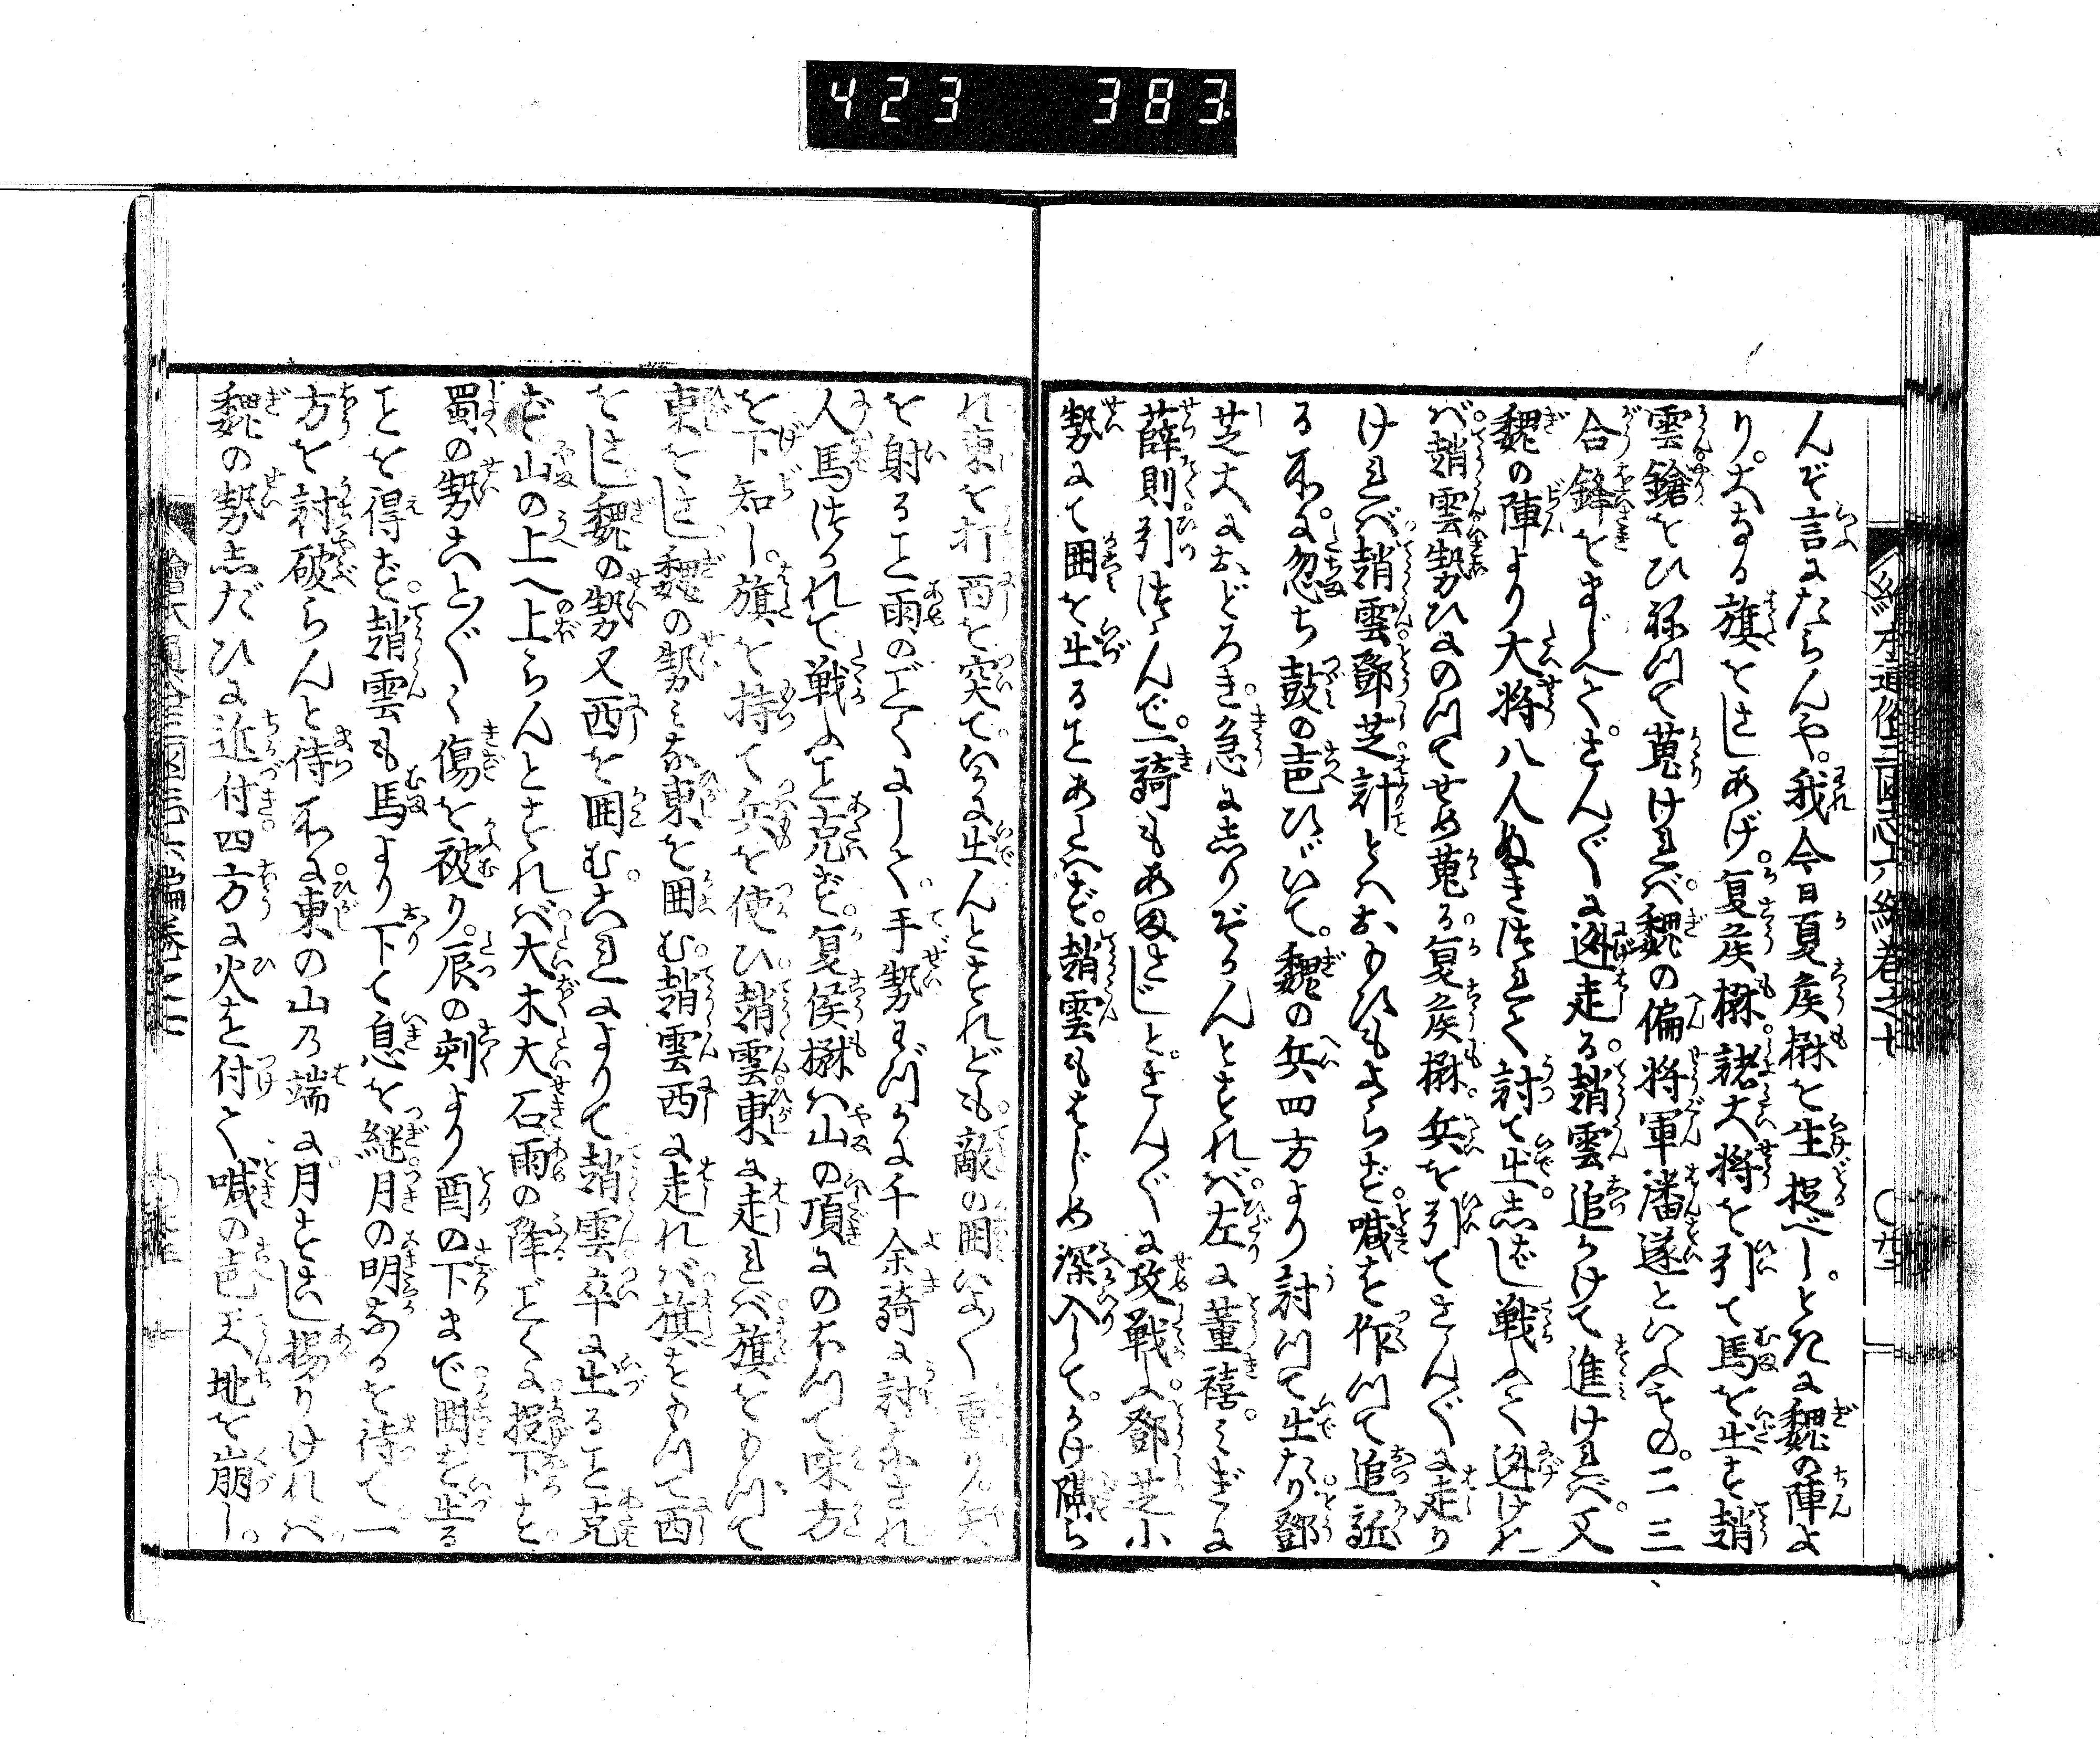 423 383
絵本通俗三国志六編巻之七
んぞ言にたらんや。我今日夏侯楙を生捉べしとたに魏の陣よ
り。大なる旗をさしあげ。夏侯楙。諸大将を引て馬を出す趙
雲鎗をひねつて蒐ければ。魏の偏将軍潘遂といふもの。二三
合鋒をまじへて。さんぐに迯走る。趙雲追かけて進ければ。又
魏の陣より大将八人ぬきつれて討て出しばし戦ふて迯けれ
ば。趙雲勢ひにのつてせめ蒐る。夏侯楙。兵を引てさんぐに走り
けれバ。趙雲。鄧芝計とハおもひもよらず。喊を作つて追詰
る所に。忽ち鼓の声ひゞいて。魏の兵四方より討つて出たり。鄧
芝大におどろき。急にしりぞかんとすれバ。左に董禧。みぎに
薛則引つゝんで。一騎もあまさじと。さんぐに攻戦ふ。鄧芝小
勢にて囲を出ることあたハず。趙雲もはじめ深入して。かけ隔ら
れ東を打西を突て。いかに出んとすれども。敵の囲いよ〱重り。矢
を射ること雨のごとくにして。手勢わづかに千余騎に討なされ
人馬つかれて戦ふこと克ず。夏侯楙ハ山の頂にのぼつて味方
を下知し。旗を持て兵を使ひ。趙雲東に走れバ。旗をもつて
東をさし。魏の勢みな東を囲む。趙雲西に走れバ。旗をもつて西
をさし魏の勢又西を囲む。これによりて趙雲卒に出ること克
ず山の上へ上らんとすれバ。大木大石雨の降ごとくに投下す
蜀の勢ことごとく傷を被り。辰の刻より酉の下まで囲を出る
ことを得ず。趙雲も馬より下て息を継。月の明なるを待て。一
方を討破らんと待所に。東の山乃端に。月すこし揚りけれバ
魏の勢しだひに近付。四方に火を付て。喊の声天地を崩し。